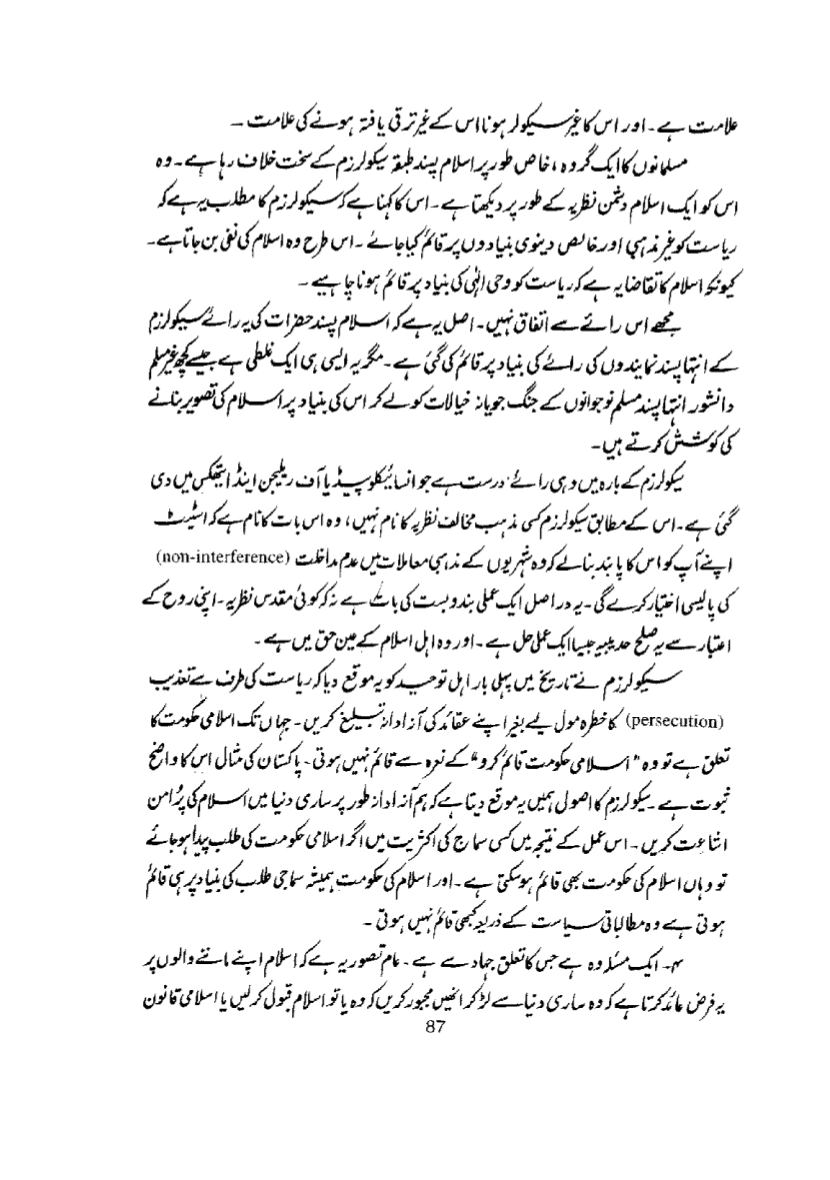 علامت ہے۔ اور اس کا غیر سیکولر ہونا اس کے غیر ترقی یافتہ ہونے کی علامت ۔
مسلمانوں کا ایک گروہ، خاص طور پر اسلام پسند طبقہ سیکولرزم کے سخت خلاف رہا ہے۔ وہ
اس کو ایک اسلام دشمن نظریہ کے طور پر دیکھتا ہے۔ اس کا کہنا ہے کہ سیکولرزم کا مطلب یہ ہے کہ
ریاست کو غیر مذہبی اور خالص دینوی بنیادوں پر قائم کیا جائے ۔ اس طرح وہ اسلام کی نفی بن جاتا ہے۔
کیونکہ اسلام کا تقاضا یہ ہے کہ ریاست کو وحی الٰہی کی بنیاد پر قائم ہونا چاہیے ۔
مجھے اس رائے سے اتفاق نہیں۔ اصل یہ ہے کہ اسلام پسند حضرات کی یہ رائے سیکولرزم
کے انتہا پسند نمایندوں کی رائے کی بنیاد پر قائم کی گئی ہے۔ مگر یہ ایسی ہی ایک غلطی ہے جیسے کچھ غیر مسلم
دانشور انتہا پسند مسلم نوجوانوں کے جنگ جویانہ خیالات کو لے کر اس کی بنیاد پر اسلام کی تصویر بنانے
کی کوشش کرتے ہیں۔
سیکولرزم کے بارہ میں وہی رائے درست ہے جو انسائیکلوپیڈیا آف ریلیجن اینڈ ایتھکس میں دی
گئی ہے۔ اس کے مطابق سیکولرزم کسی مذہب مخالف نظریہ کا نام نہیں، وہ اس بات کا نام ہے کہ اسٹیٹ
اپنے آپ کو اس کا پابند بنالے کہ وہ شہریوں کے مذہبی معاملات میں عدم مداخلت (non-interference)
کی پالیسی اختیار کرے گی۔ یہ دراصل ایک عملی بندوبست کی بات ہے نہ کہ کوئی مقدس نظریہ۔ اپنی روح کے
اعتبار سے یہ صلح حدیبیہ جیسا ایک عملی حل ہے ۔ اور وہ اہل اسلام کے عین حق میں ہے ۔
سیکولرزم نے تاریخ میں پہلی بار اہل توحید کو یہ موقع دیا کہ ریاست کی طرف سے تعذیب
(persecution) کا خطرہ مول لیے بغیر اپنے عقائد کی آزادانہ تبلیغ کریں۔ جہاں تک اسلامی حکومت کا
تعلق ہے تو وہ "اسلامی حکومت قائم کرو" کے نعرہ سے قائم نہیں ہوتی۔ پاکستان کی مثال اس کا واضح
ثبوت ہے ۔ سیکولرزم کا اصول ہمیں یہ موقع دیتا ہے کہ ہم آزادانہ طور پر ساری دنیا میں اسلام کی پُرامن
اشاعت کریں ۔ اس عمل کے نتیجہ میں کسی سماج کی اکثریت میں اگر اسلامی حکومت کی طلب پیدا ہو جائے
تو وہاں اسلام کی حکومت بھی قائم ہو سکتی ہے ۔ اور اسلام کی حکومت ہمیشہ سماجی طلب کی بنیاد پر ہی قائم
ہوتی ہے وہ مطالباتی سیاست کے ذریعہ کبھی قائم نہیں ہوتی ۔
۴۔ ایک مسئلہ وہ ہے جس کا تعلق جہاد سے ہے ۔ عام تصور یہ ہے کہ اسلام اپنے ماننے والوں پر
یہ فرض عائد کرتا ہے کہ وہ ساری دنیا سے لڑ کر انھیں مجبور کریں کہ وہ یا تو اسلام قبول کرلیں یا اسلامی قانون
87